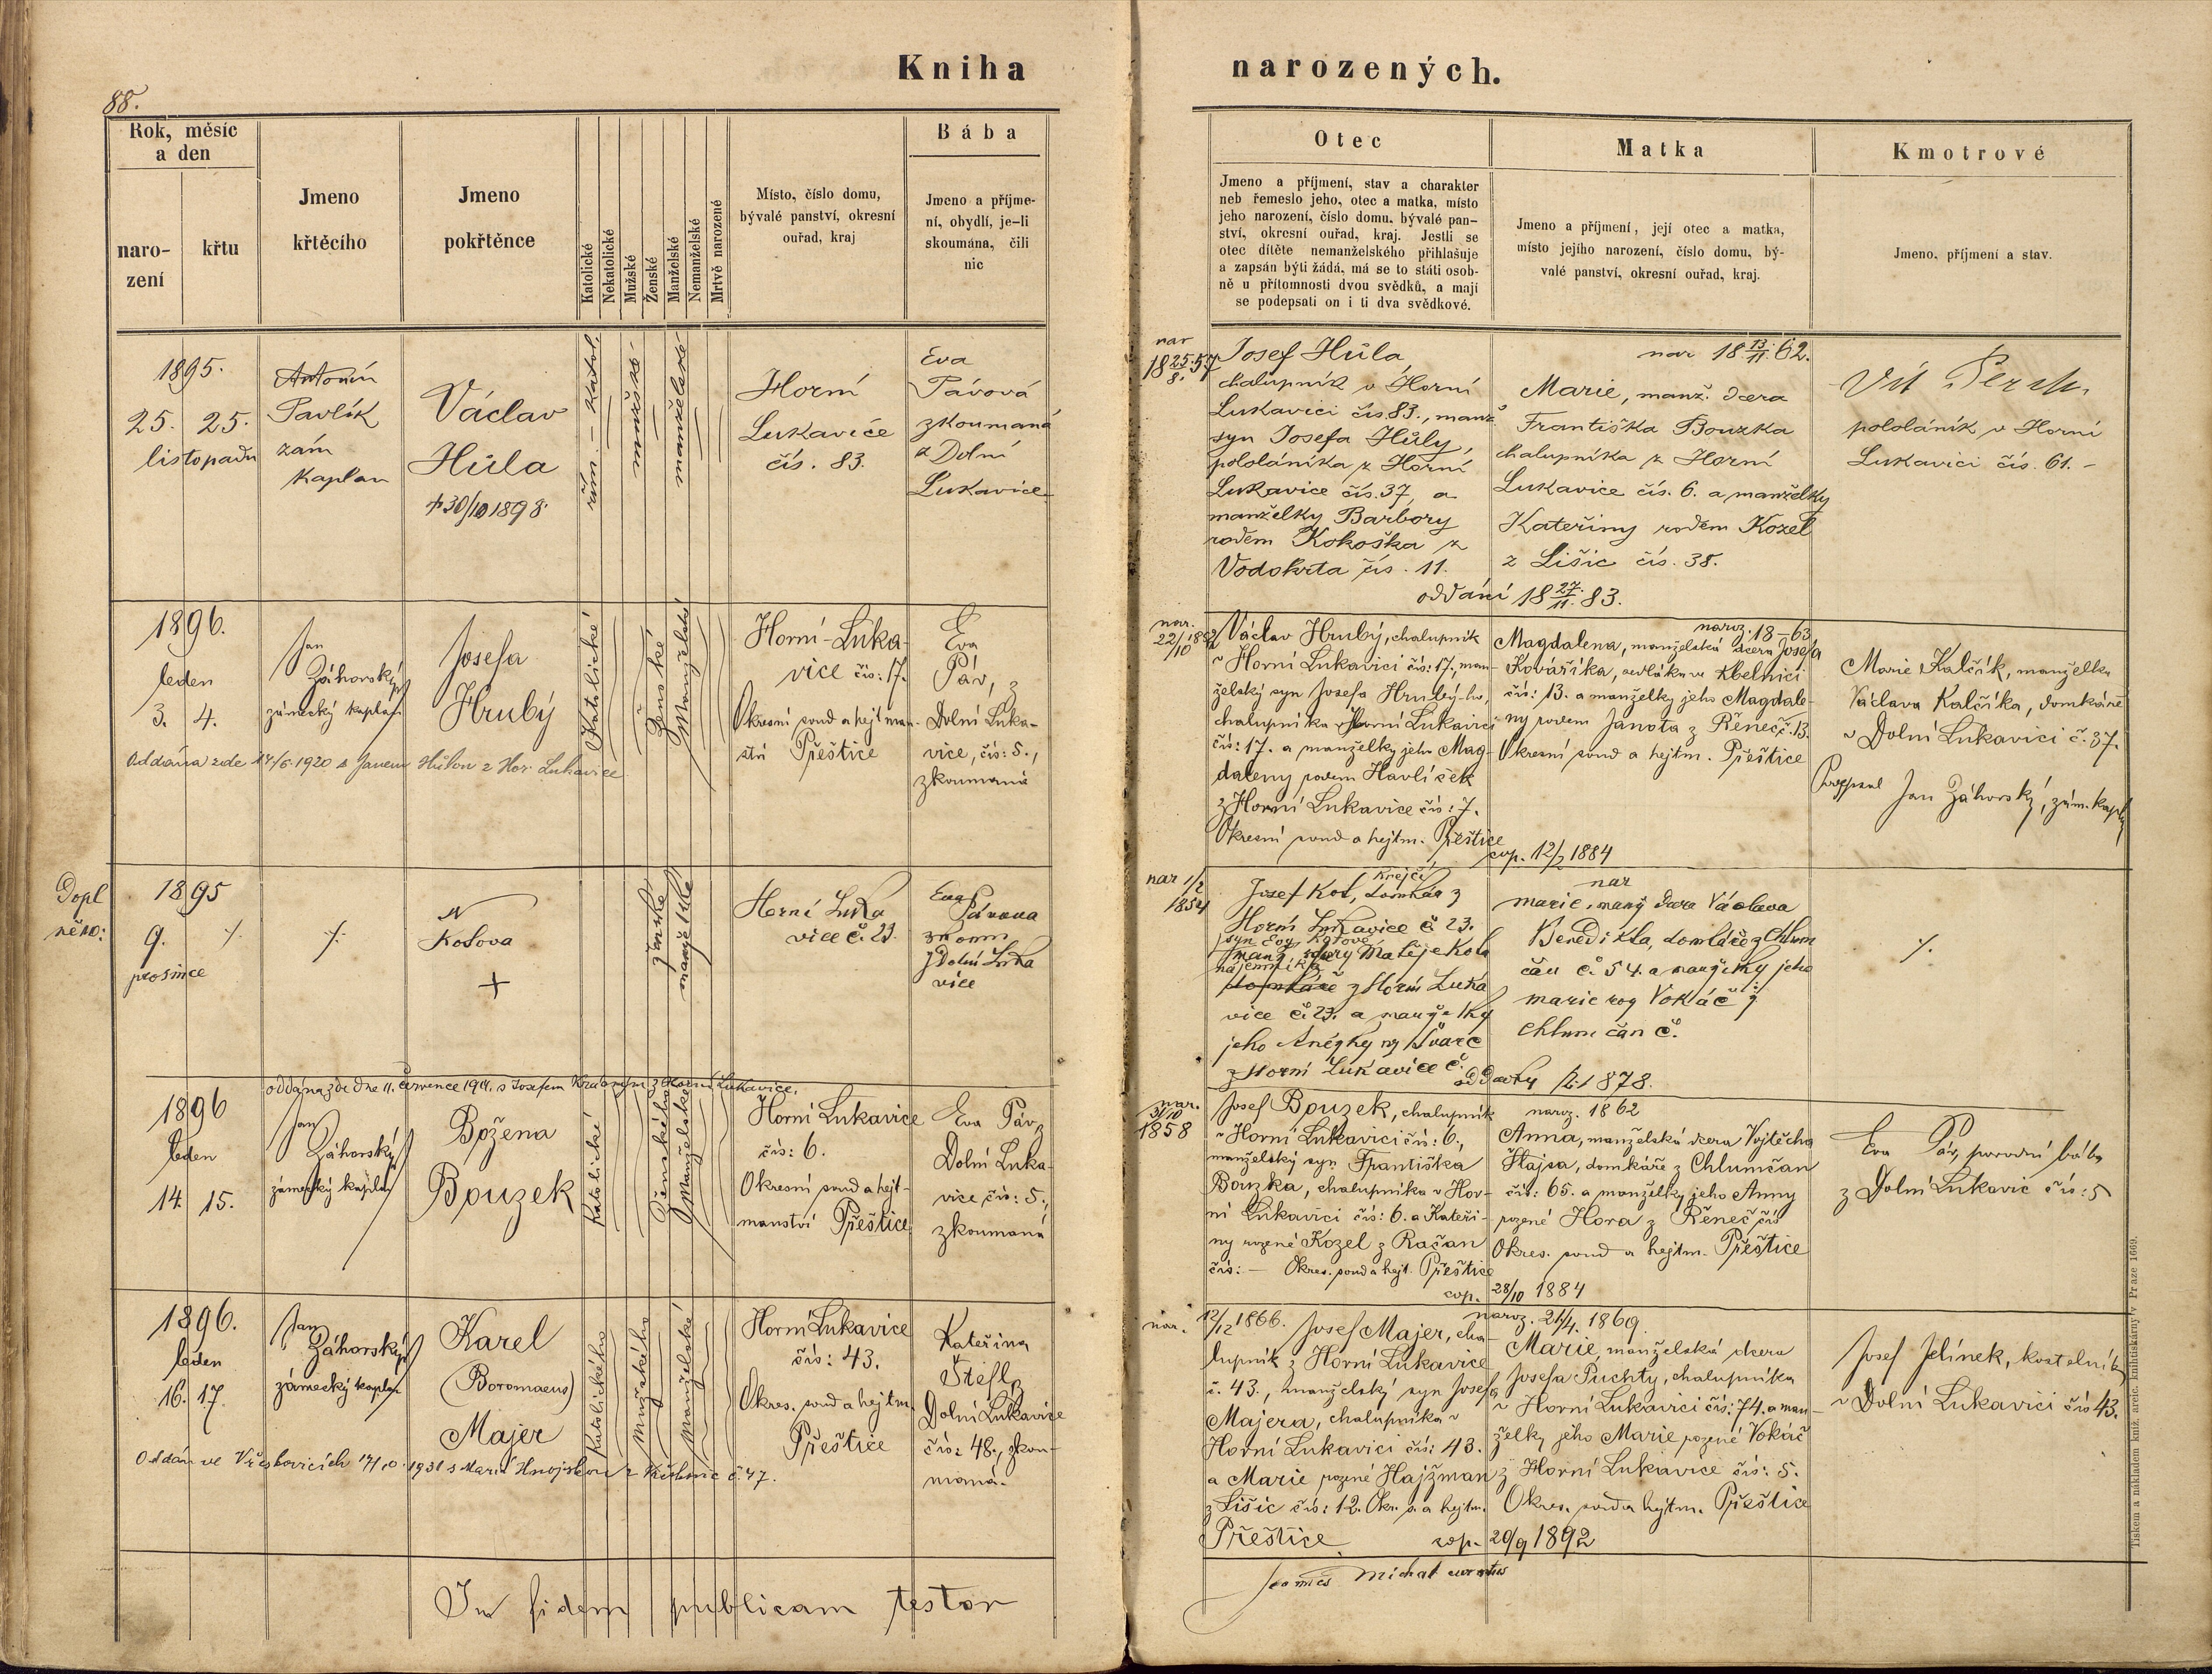 Kniha narozených.
88.
Rok, měsíc
a den
naro-
zení
křtu
Jmeno
křtěcího
Jmeno
pokřtěnce
Katolické
Nekatolické
Mužské
Ženské
Manželské
Nemanželské
Mrtvě narozené
Místo, číslo domu,
bývalé panství, okresní
ouřad, kraj
Bába
Jmeno a příjme-
ní, obydlí, je-li
skoumána, čili
nic
Otec
Jmeno a příjmení, stav a charakter
neb řemeslo jeho, otec a matka, místo
jeho narození, číslo domu, bývalé pan-
ství, okresní ouřad, kraj. Jestli se
otec dítěte nemanželského přihlašuje
a zapsán býti žádá, má se to státi osob-
ně u přítomnosti dvou svědků, a mají
se podepsati on i ti dva svědkové.
Matka
Jmeno a příjmení, její otec a matka,
místo jejího narození, číslo domu, bý-
valé panství, okresní ouřad, kraj.
Kmotrové
Jmeno, příjmení a stav.
1895.
25. 25.
listopadu
Antonín
Pavlík
zám
kaplan
Václav
Hůla
+30/10 1898
řím. - katol.
mužské
manželské
Horní
Lukavice
čís. 83.
Eva
Pávová
zkoumaná
z Dolní
Lukavice
nar
18 25/8. 57
Josef Hůla
chalupník v Horní
Lukavici čís. 83., manž
syn Josefa Hůly,
pololáníka z Horní
Lukavice čís. 37, a
manželky Barbory
rodem Kokoška z
Vodokrta čís. 11.
nar 18 13/11. 62.
Marie, manž. dcera
Františka Bouzka
chalupníka z Horní
Lukavice čís. 6. a manželky
Kateřiny rodem Kozel
z Lišic čís. 38.
oddáni 18 27/11. 83.
Vít
pololáník v Horní
Lukavici čís. 61. -
1896.
leden
3. 4.
Jan
Záhorský
zámecký kaplan
Josefa
Hrubý
Oddána zde 14/6 1920 s Janem Hůlou z Hor. Lukavice
Katolické
Ženské
Manželské
Horní-Luka-
vice čís: 17.
Okresní soud a hejtman-
ství Přeštice
Eva
Páv, z
Dolní Luka-
vice, čís: 5.,
zkoumaná
nar.
22/10 1862
Václav Hrubý, chalupník
v Horní Lukavici čís: 17., man-
želský syn Josefa Hrubý-ho,
chalupníka v Horní Lukavici
čís: 17. a manželky jeho Mag-
daleny rodem Havlíček
z Horní Lukavice čís: 7.
Okresní soud a hejtm. Přeštice
naroz. 18-63
Magdalena, manželská dcera Josefa
Kováříka, sedláka ve Kbelnici
čís: 13. a manželky jeho Magdale-
ny rodem Janota z Řeneč č. 13.
Okresní soud a hejtm. Přeštice
cop. 12/2 1884
Marie Kalčík, manželka
Václava Kalčíka, domkáře
v Dolní Lukavici č. 37.
Podepsal Jan Záhorský, zám. kapl
Dopl
něno:
1895
9. ⁒
prosince
⁒
N
Kotova
+
ženské
manželské
Horní Luka
vice č. 23.
Eva
Pávova
zkoum
z Dolní Luka
vice
nar 1/2
1854
Krejčí
Josef Kot, domkář z
Horní Lukavice č 23.
syn Evy Kotové
manž. dcery Matěje Kota
nájemníka
domkáře z Horní Luka
vice č. 23. a manželky
jeho Anežky roz Švarc
z Horní Lukavice č.
nar
marie, manž dcera Václava
Benedikta, domkáře z Chlum
čan č. 54. a manželky jeho
marie roz Vokáč z
Chlumčan č.
oddavky 1878.
⁒
oddána zde dne 11. července 1911. s Josefem Hrubým z Horní Lukavice.
1896
leden
14. 15.
Jan
Záhorský
zámecký kaplan
Božena
Bouzek
Katolické
Ženského
Manželské
Horní Lukavice
čís: 6.
Okresní soud a hejt-
manství Přeštice
Eva Páv, z
Dolní Luka-
vice, čís: 5.,
zkoumaná
nar.
31/10
1858
Josef Bouzek, chalupník
v Horní Lukavici čís: 6.,
manželský syn Františka
Bouzka, chalupníka v Hor-
ní Lukavici čís: 6. a Kateři-
ny rozené Kozel z Račan
čís: - Okres. soud a hejt. Přeštice
naroz. 1862
Anna, manželská dcera Vojtěcha
Hajsa, domkáře z Chlumčan
čís: 65. a manželky jeho Anny
rozené Hora z Řeneč čís
Okres. soud a hejtm. Přeštice
cop. 28/10 1884
Eva Páv, porodní bába
z Dolní Lukavic čís: 5
1896.
leden
16. 17.
Jan
Záhorský
zámecký kaplan
Karel
(Boromaeus)
Majer
Oddán ve Vřeskovicích 17/10. 1931 s Marií Hnojskou z č. 47.
Katolického
Mužského
Manželské
Horní Lukavice
čís: 43.
Okres. soud a hejtm.
Přeštice
Kateřina
Štefl, z
Dolní Lukavice
čís: 48., zkou-
maná.
nar.
12/12 1866. Josef Majer, cha-
lupník z Horní Lukavice
č. 43., manželský syn Josefa
Majera, chalupníka v
Horní Lukavici čís: 43.
a Marie rozené Hajžman
z Lišic čís: 12. Okr. s. a hejtm.
Přeštice
naroz. 21/4. 1869.
Marie, manželská dcera
Josefa Puchty, chalupníka
v Horní Lukavici čís: 74. a man-
želky jeho Marie rozené Vokáč
z Horní Lukavice čís: 5.
Okres. soud a hejtm. Přeštice
cop. 20/9 1892
Josef Jelínek, kostelník
v Dolní Lukavici čís 43.
In fidem publicam testor
Michal curatus
Tiskem a nákladem kníž. arcib. knihtiskárny v Praze 1669.